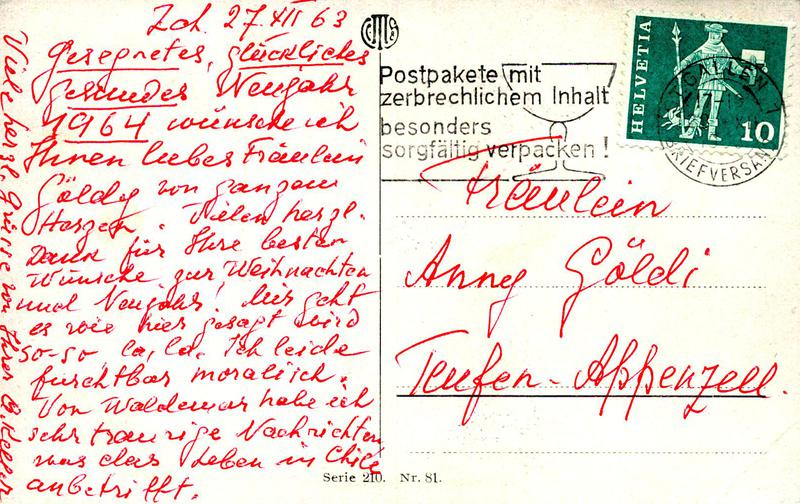 Zch. 27. XII 63
Gesegnetes, glückliches
gesundes Neujahr
1964 wünsche ich
Ihnen liebes Fräulein
Göldy von ganzem
Herzen. Vielen herzl.
Dank für Ihre besten
Wünsche zur Weihnachten
und Neujahr! Mir geht
es wie hier gesagt wird
so-so, la, la. Ich leide
furchtbar moralisch.
Von Waldemar habe ich
sehr traurige Nachrichten
was das Leben in Chile
anbetrifft.
Viele herzl. Grüsse von Ihrer G. Keller
Postpakete mit
zerbrechlichem Inhalt
besonders
sorgfältig verpacken!
HELVETIA
10
GALLEN
BRIEFVERSAND
Fräulein
Anny Göldi
Teufen-Appenzell.
Serie 210. Nr. 81.